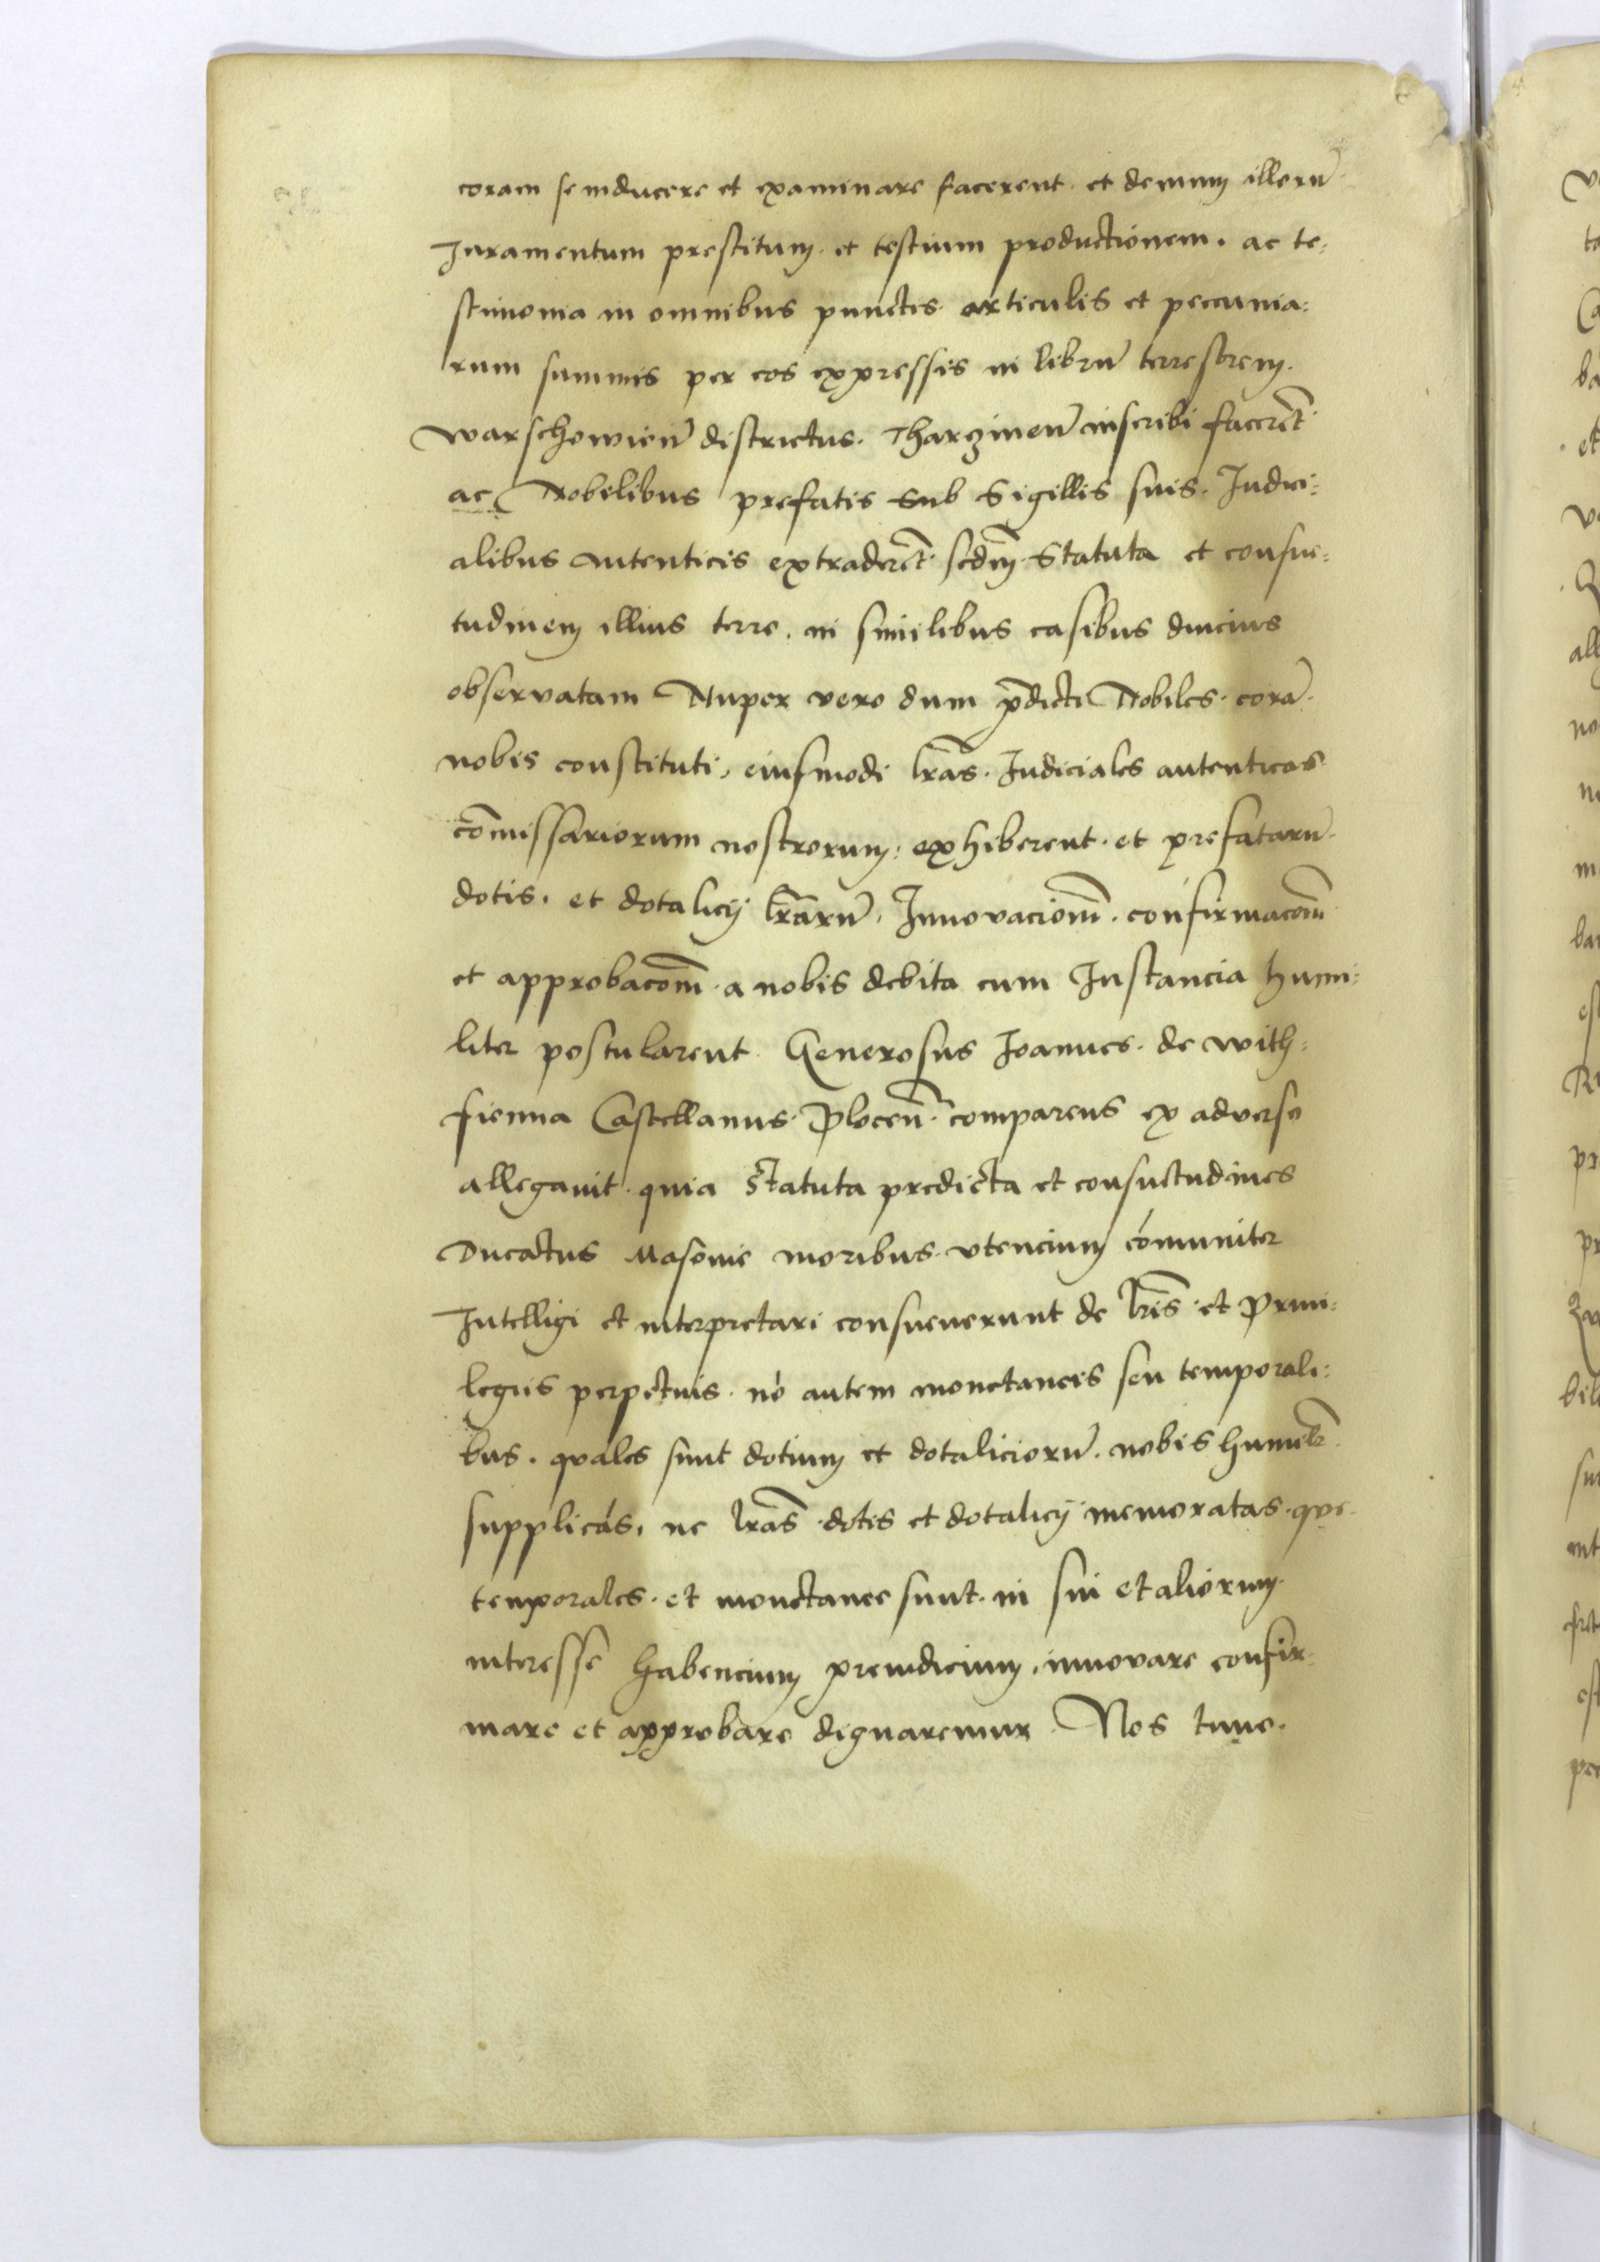 coram se inducere et examinare facerent. et demum illorū
Juramentum prestitum. et testium productionem. ac te:
stimonia in omnibus punctis. articulis et peccunia:
rum summis per eos expressis in librū terrestrem.
warschowień districtus. Tharzineń inscribi facerēt
ac Nobilibus prefatis sub Sigillis suis. Judici:
alibus autenticis extraderēt. scdm̄ Statuta et consue:
tudinem illius terre. in similibus casibus diucius
obseruatam Nuper vero dum p̄dicti Nobiles. corā.
nobis constituti, eiusmodi lrās. Judiciales autenticas
cōmissariorum nostrorum: exhiberent. et prefatarū.
dotis. et dotalicij lrārū. Innouacionē. confirmacōnē
et approbacōnē. a nobis debita cum Instancia humi:
liter postularent. Generosus Joannes. de with:
fienna Castellanus. Ploceń. comparens ex aduerso
allegauit. quia Statuta predicta et consuetudines
Ducatus Masouie moribus. vtencium cōmuniter
Intelligi et interpretari consueuerunt de lrīs. et Priui:
legiis perpetuis. nō autem monetaneis seu temporali:
bus. quales sunt dotium et dotaliciorū. nobis humilr̄.
supplicās. ne lrās. dotis et dotalicij memoratas. que.
temporales. et monetanee sunt. in sui et aliorum.
interesse habencium preiudicium. innouare confir:
mare et approbare dignaremur. Nos tunc.